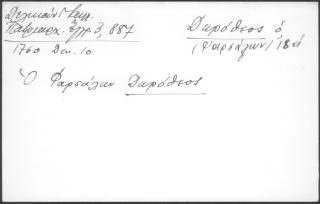 Δελικάνη Καλλ.
Πατριαρχ. Έγγρ. 3, 887
1760 Δεκ. 10
Δωρόθεος ὁ
(Φαρσάλων) 18 αἰ
Ὁ Φαρσάλων Δωρόθεος